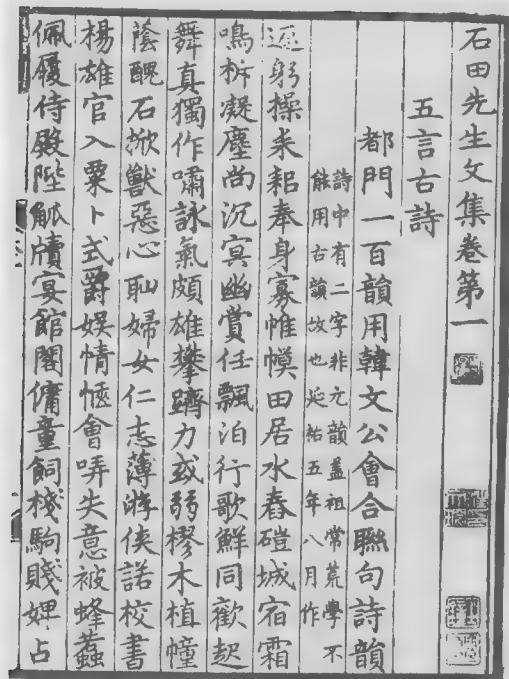 石田先生文集卷第一
五言古詩
都門一百韻用韓文公會合聯句詩韻
詩中有二字非元韻蓋祖常荒學不
能用古韻故也延祐五年八月作
逕躬操耒耜奉身寡帷幙田居水舂磑城宿霜
鳴柝凝塵尚沉冥幽賞任飄泊行歌鮮同歡起
舞真獨作嘯詠氣頗雄攀躋力或弱樛木植幢
蔭醜石揿獸惡心耻婦女仁志薄游俠諾校書
楊雄官入粟卜式爵娛情愜會哢失意被蜂蠚
佩履侍殿陛觚牘宴館閣傭童飼棧駒賤婢占